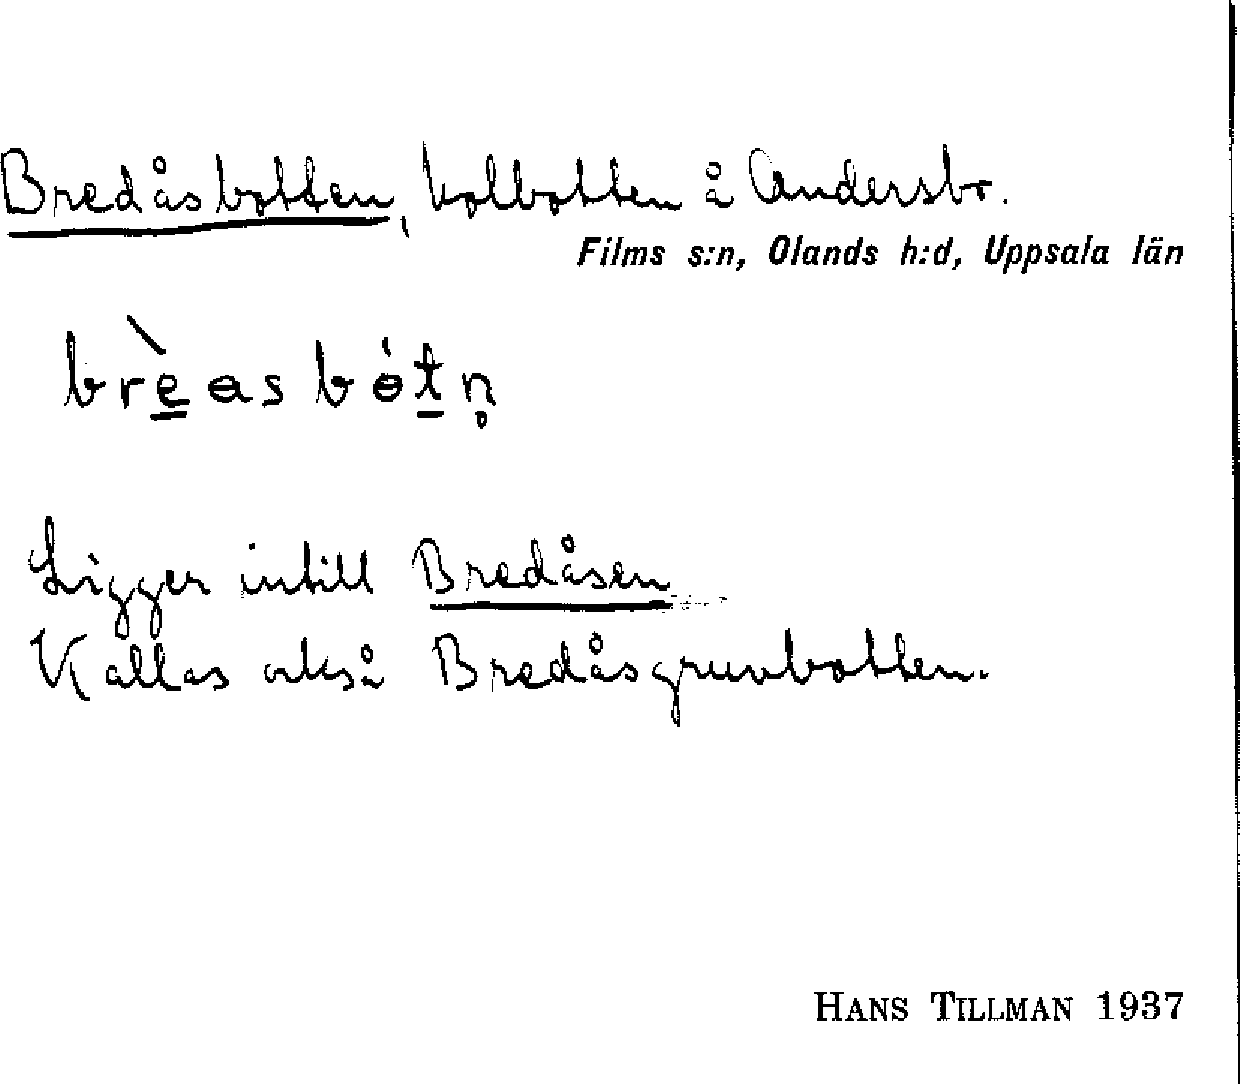 Bredåsbotten, kolbotten å Andersbo.
Films s:n, Olands h:d, Uppsala län
brèasbótn̥
Ligger intill Bredåsen
Kallas också Bredåsgruvbotten.
HANS TILLMAN 1937